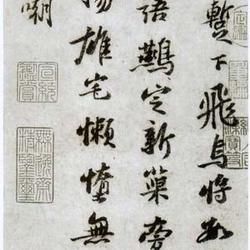 暫下飛烏將數
語鷰定新巢旁
揚雄宅懶惰無
嘲